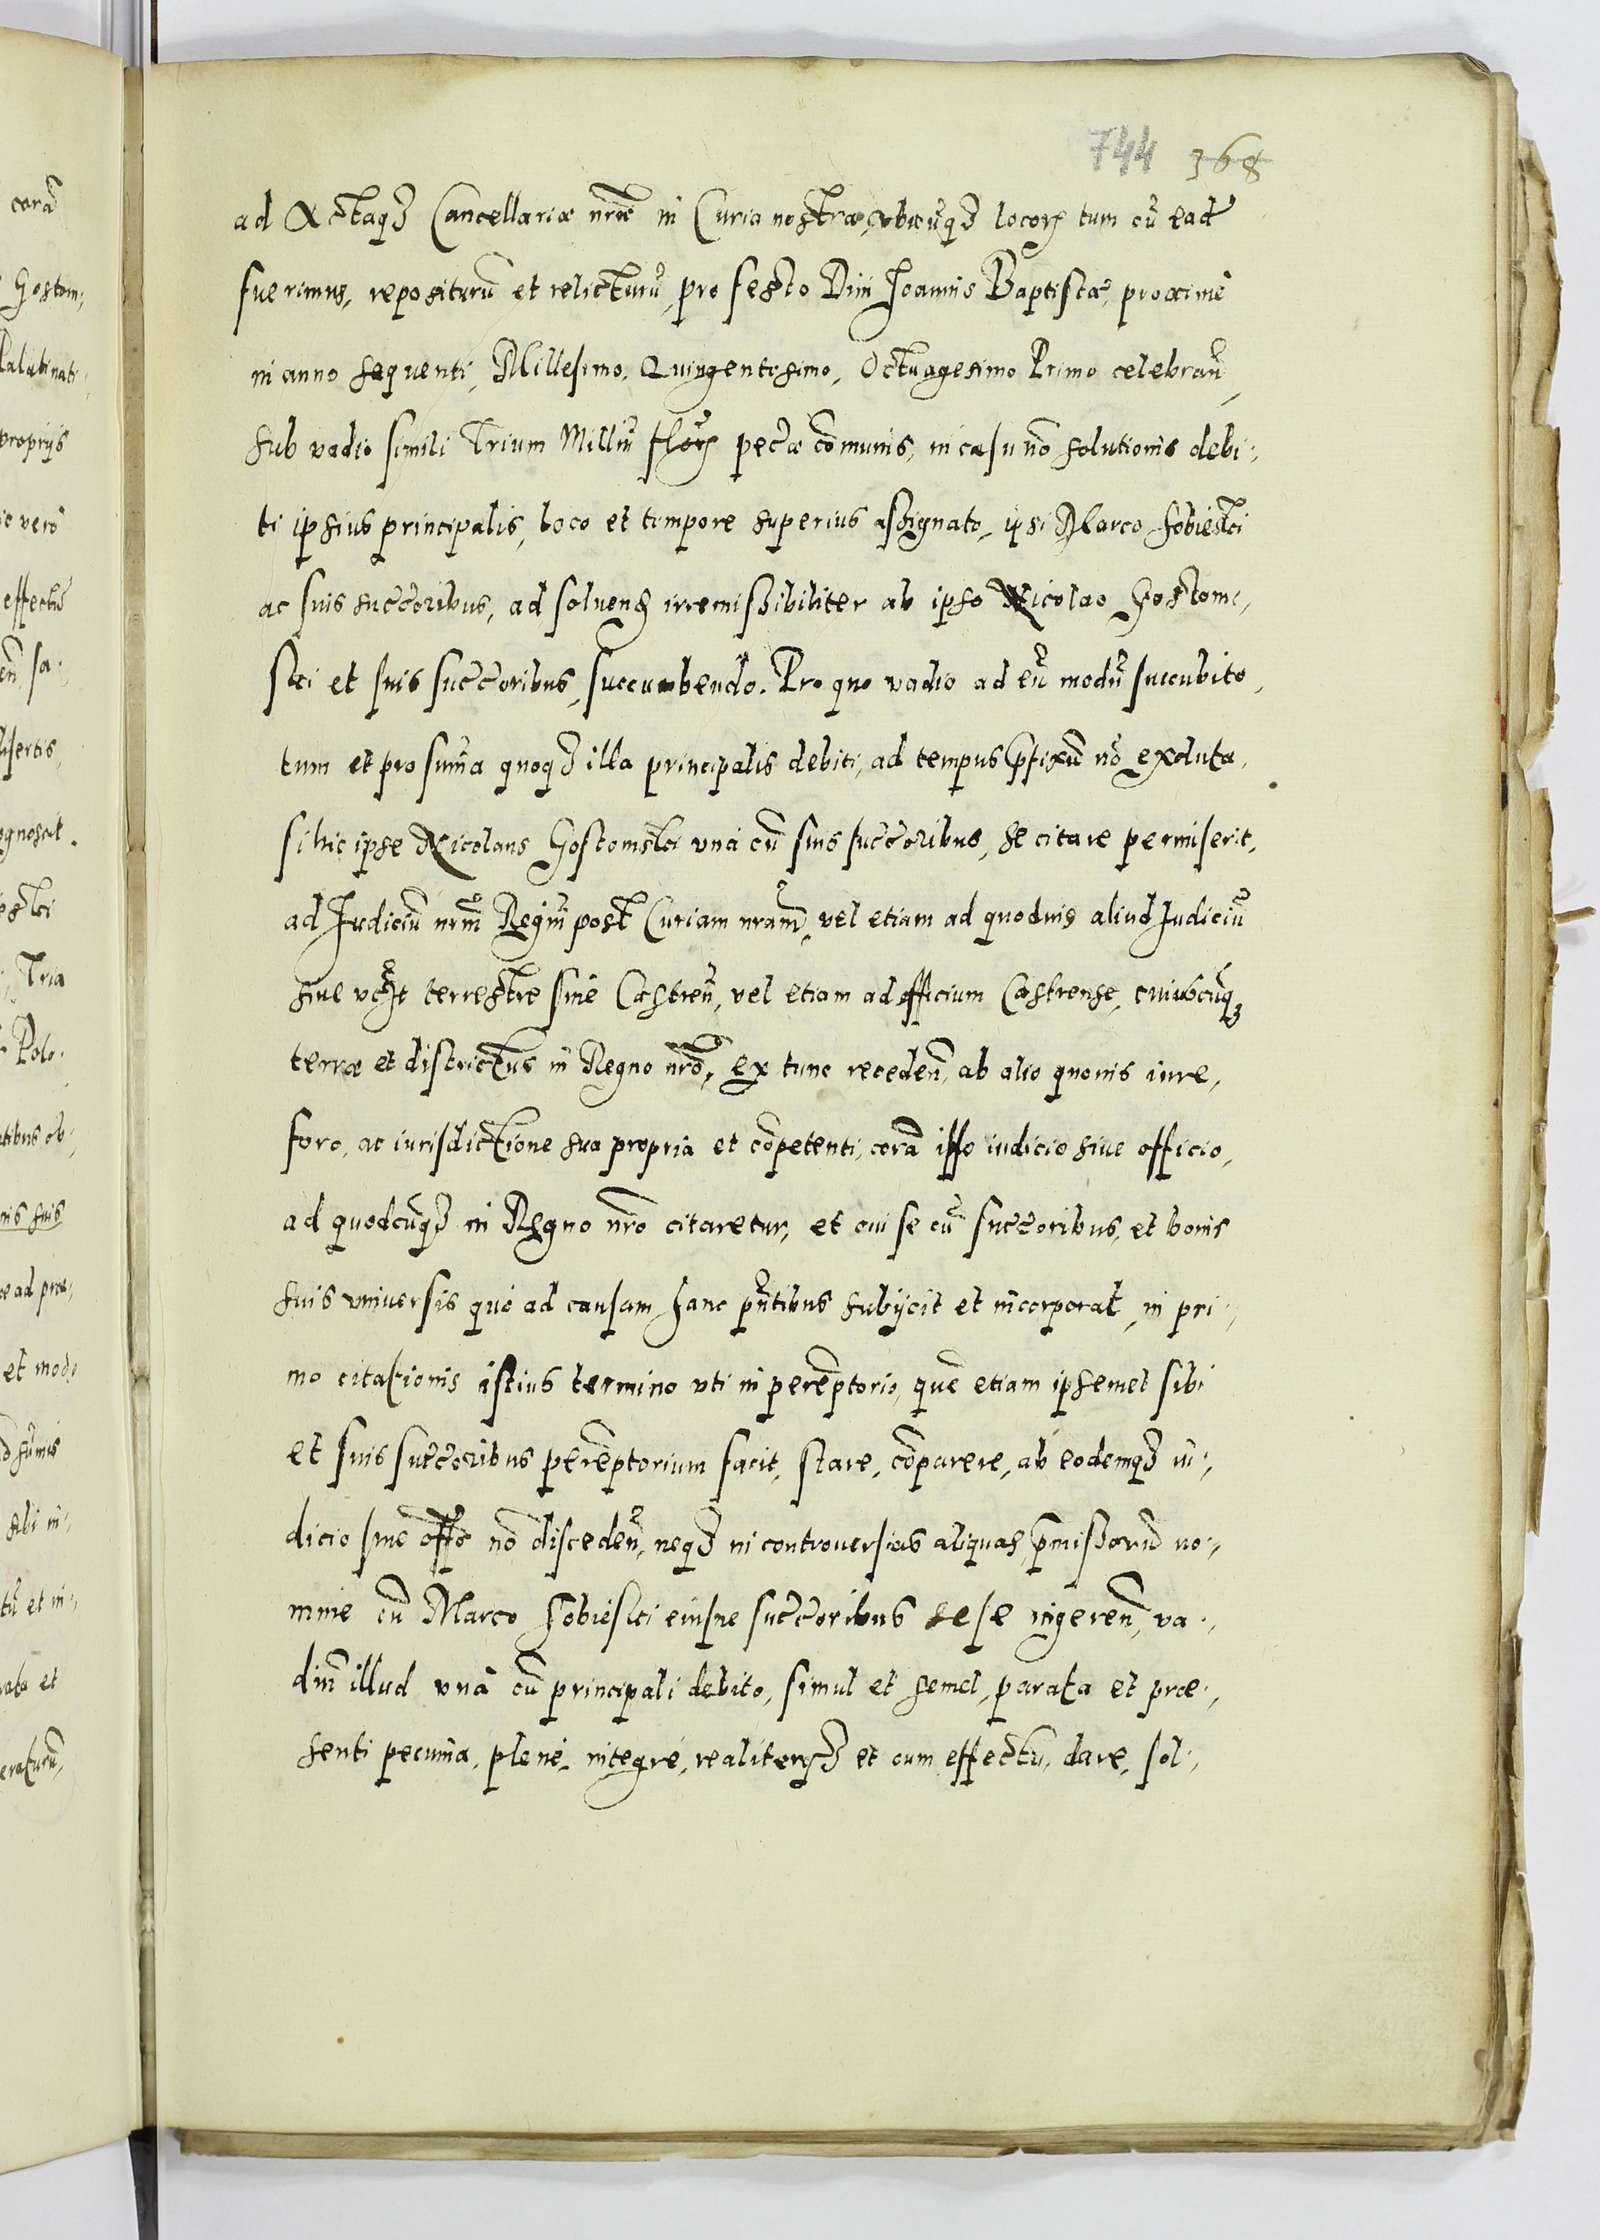 744 368
ad Actaqȝ Cancellariæ nr̃æ in Curia nostra, vbicũqȝ locorȝ tum cũ ead̃
fuerimus, repositurũ et relicturũ, pro festo Diui Joannis Baptistæ, proximè
in anno sequenti, Millesimo, Quingentesimo, Octuagesimo Primo celebrañ,
sub vadio simili Trium Milliũ florȝ pecæ com̃unis, in casu nõ solutionis debi-
ti ipsius principalis, loco et tempore superius assignato, ipsi Marco Sobieski
ac suis succ̃oribus, ad soluend̃ irremissibiliter ab ipso Nicolao Gostom-
ski et suis succ̃oribus, succumbendo. Pro quo vadio ad eũ modũ succubito,
tum et pro sum̃a quoqȝ illa principalis debiti, ad tempus p̃fixũ nõ exoluta,
si hic ipse Nicolaus Gostomski vnà cũ suis succ̃oribus, se citare permiserit,
ad Judiciũ nr̃m Regiũ post Curiam nr̃am, vel etiam ad quoduis aliud Judiciũ
siue terrestre siue Castreñ, vel etiam ad officium Castrense, cuiuscũqȝ
terræ et districtus in Regno nr̃o, ex tunc recedeñ, ab alio quouis iure,
foro, ac iurisdictione sua propria et cõpetenti, corã isto iudicio siue officio,
ad quodcũqȝ in Regno nr̃o citaretur, et cui se cũ succ̃oribus, et bonis
suis vniuersis quò ad causam hanc pñtibus subijcit et incorporat, in pri-
mo citationis istius termino vti in perẽptorio, quẽ etiam ipsemet sibi
et suis succ̃oribus perẽptorium facit, stare, cõparere, ab eodemqȝ iu-
dicio siue off̃o nõ discedeñ, neqȝ in controuersias aliquas, p̃missorũ no-
mine cũ Marco Sobieski eiusue succ̃oribus sese ingereñ, va-
diũ illud vnà cũ principali debito, simul et semel, parata et præ-
senti pecunia, plenè, integrè, realiterqȝ et cum effectu, dare, sol-